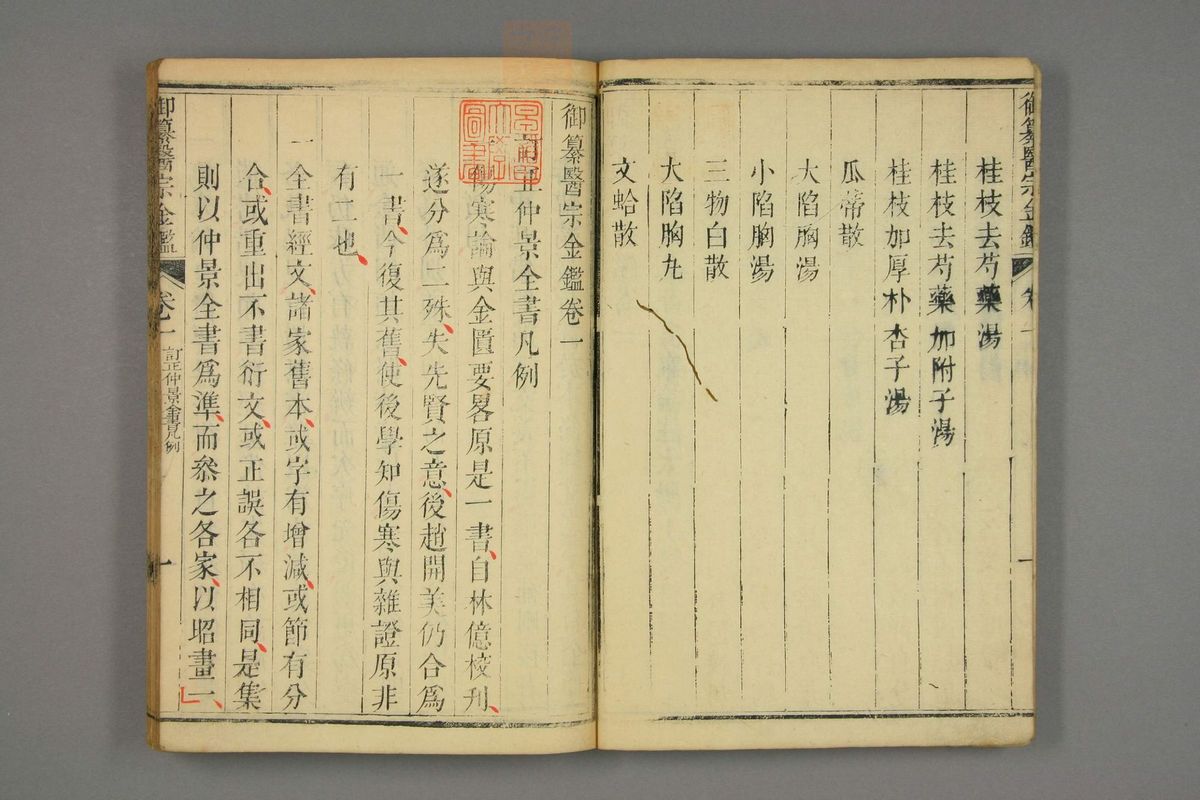 御纂醫宗金鑑
桂枝去芍藥湯
桂枝去芍藥加附子湯
桂枝加厚朴杏子湯
瓜蒂散
大陷胸湯
小陷胸湯
三物白散
大陷胸丸
文蛤散
御纂醫宗金鑑卷一
訂正仲景全書凡例
傷寒論與金匱要畧原是一書、自林億校刋、
遂分爲二殊、失先賢之意、後趙開美仍合爲
一書、今復其舊、使後學知傷寒與雜證原非
有二也、
一全書經文、諸家舊本、或字有增減、或節有分
合、或重出不書衍文、或正誤各不相同、是集
則以仲景全書爲準、而叅之各家、以昭畫一、
御纂醫宗金鑑
卷一
訂正仲景全書凡例
一